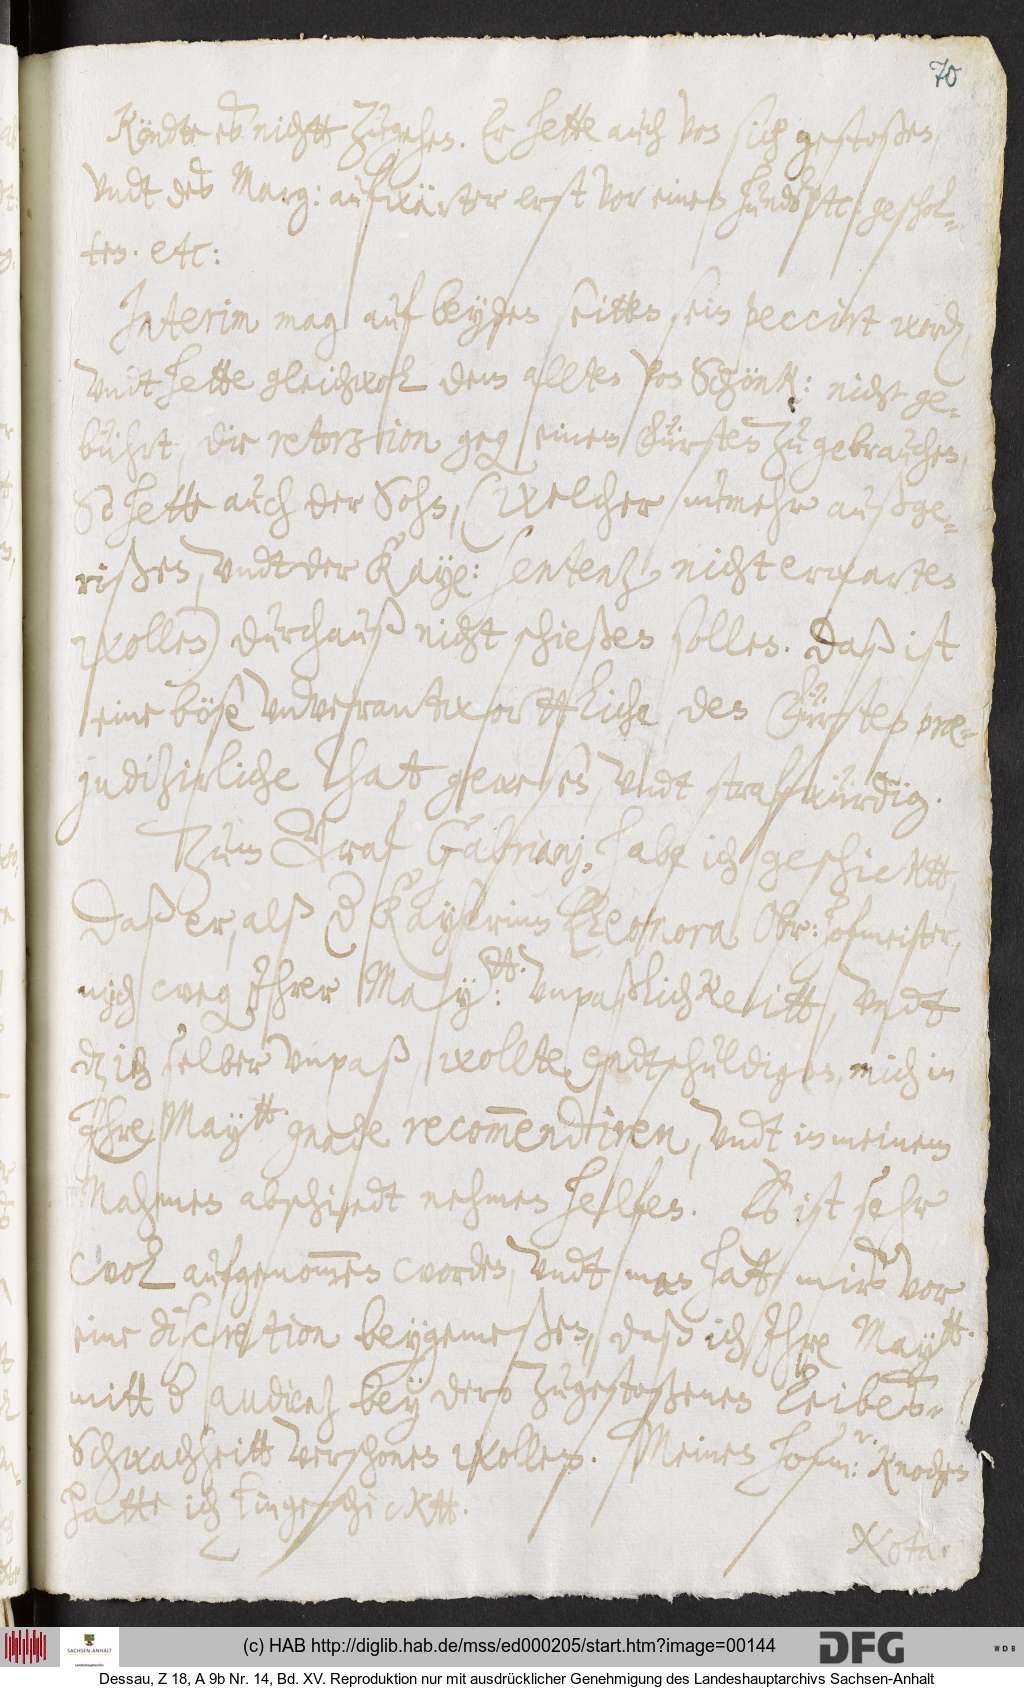 70
Köndte es nichtt Zugehen. Er hette auch von sich gestoßen,
undt des Marg: aufwärter erst vor einen hundsetc: geschol-
ten. etc:
Interim mag auf beyden seitten sein pecciret word,
undt hette gleichwol dem allten von Schönk: nicht ge-
bührt, die retorzion geg einen Fürsten zu gebrauchen,
So hette auch der Sohn, (welcher nunmehr außge-
rißen, undt der Kaye: sentenz nicht erwarten
wollen) durchauß nicht schießen sollen. Daß ist
eine böse unverantwortliche des Fürsten præ-
judizirliche That gewesen, undt strafwürdig.
Zum Graf Gabriani, habe ich geschicktt,
Daß er, alß d Kayserinn Eleonora Obr: hofmeister,
mich weg Ihrer Mayt: unpaßlichkeitt, undt
dz ich selber unpaß, wollte endtschuldigen, mich in
Ihre Maytt: gnade recommendiren, undt in meinem
Nahmen abschiedt nehmen helfen. Es ist sehr
wol aufgenommen worden, undt man hatt mirs vor
eine discretion beygemeßen, daß ich Ihre Maytt:
mitt d audientz bey dero zugestoßenen Leibes-
Schwachheitt verschonen wollen. Meinen hofm:r Knochen
hatte ich hingeschicktt.
Nota:
(c) HAB http://diglib.hab.de/mss/ed000205/start.htm?image=00144
SACHSEN-ANHALT
DFG
WDB
Dessau, Z 18, A 9b Nr. 14, Bd. XV. Reproduktion nur mit ausdrücklicher Genehmigung des Landeshauptarchivs Sachsen-Anhalt